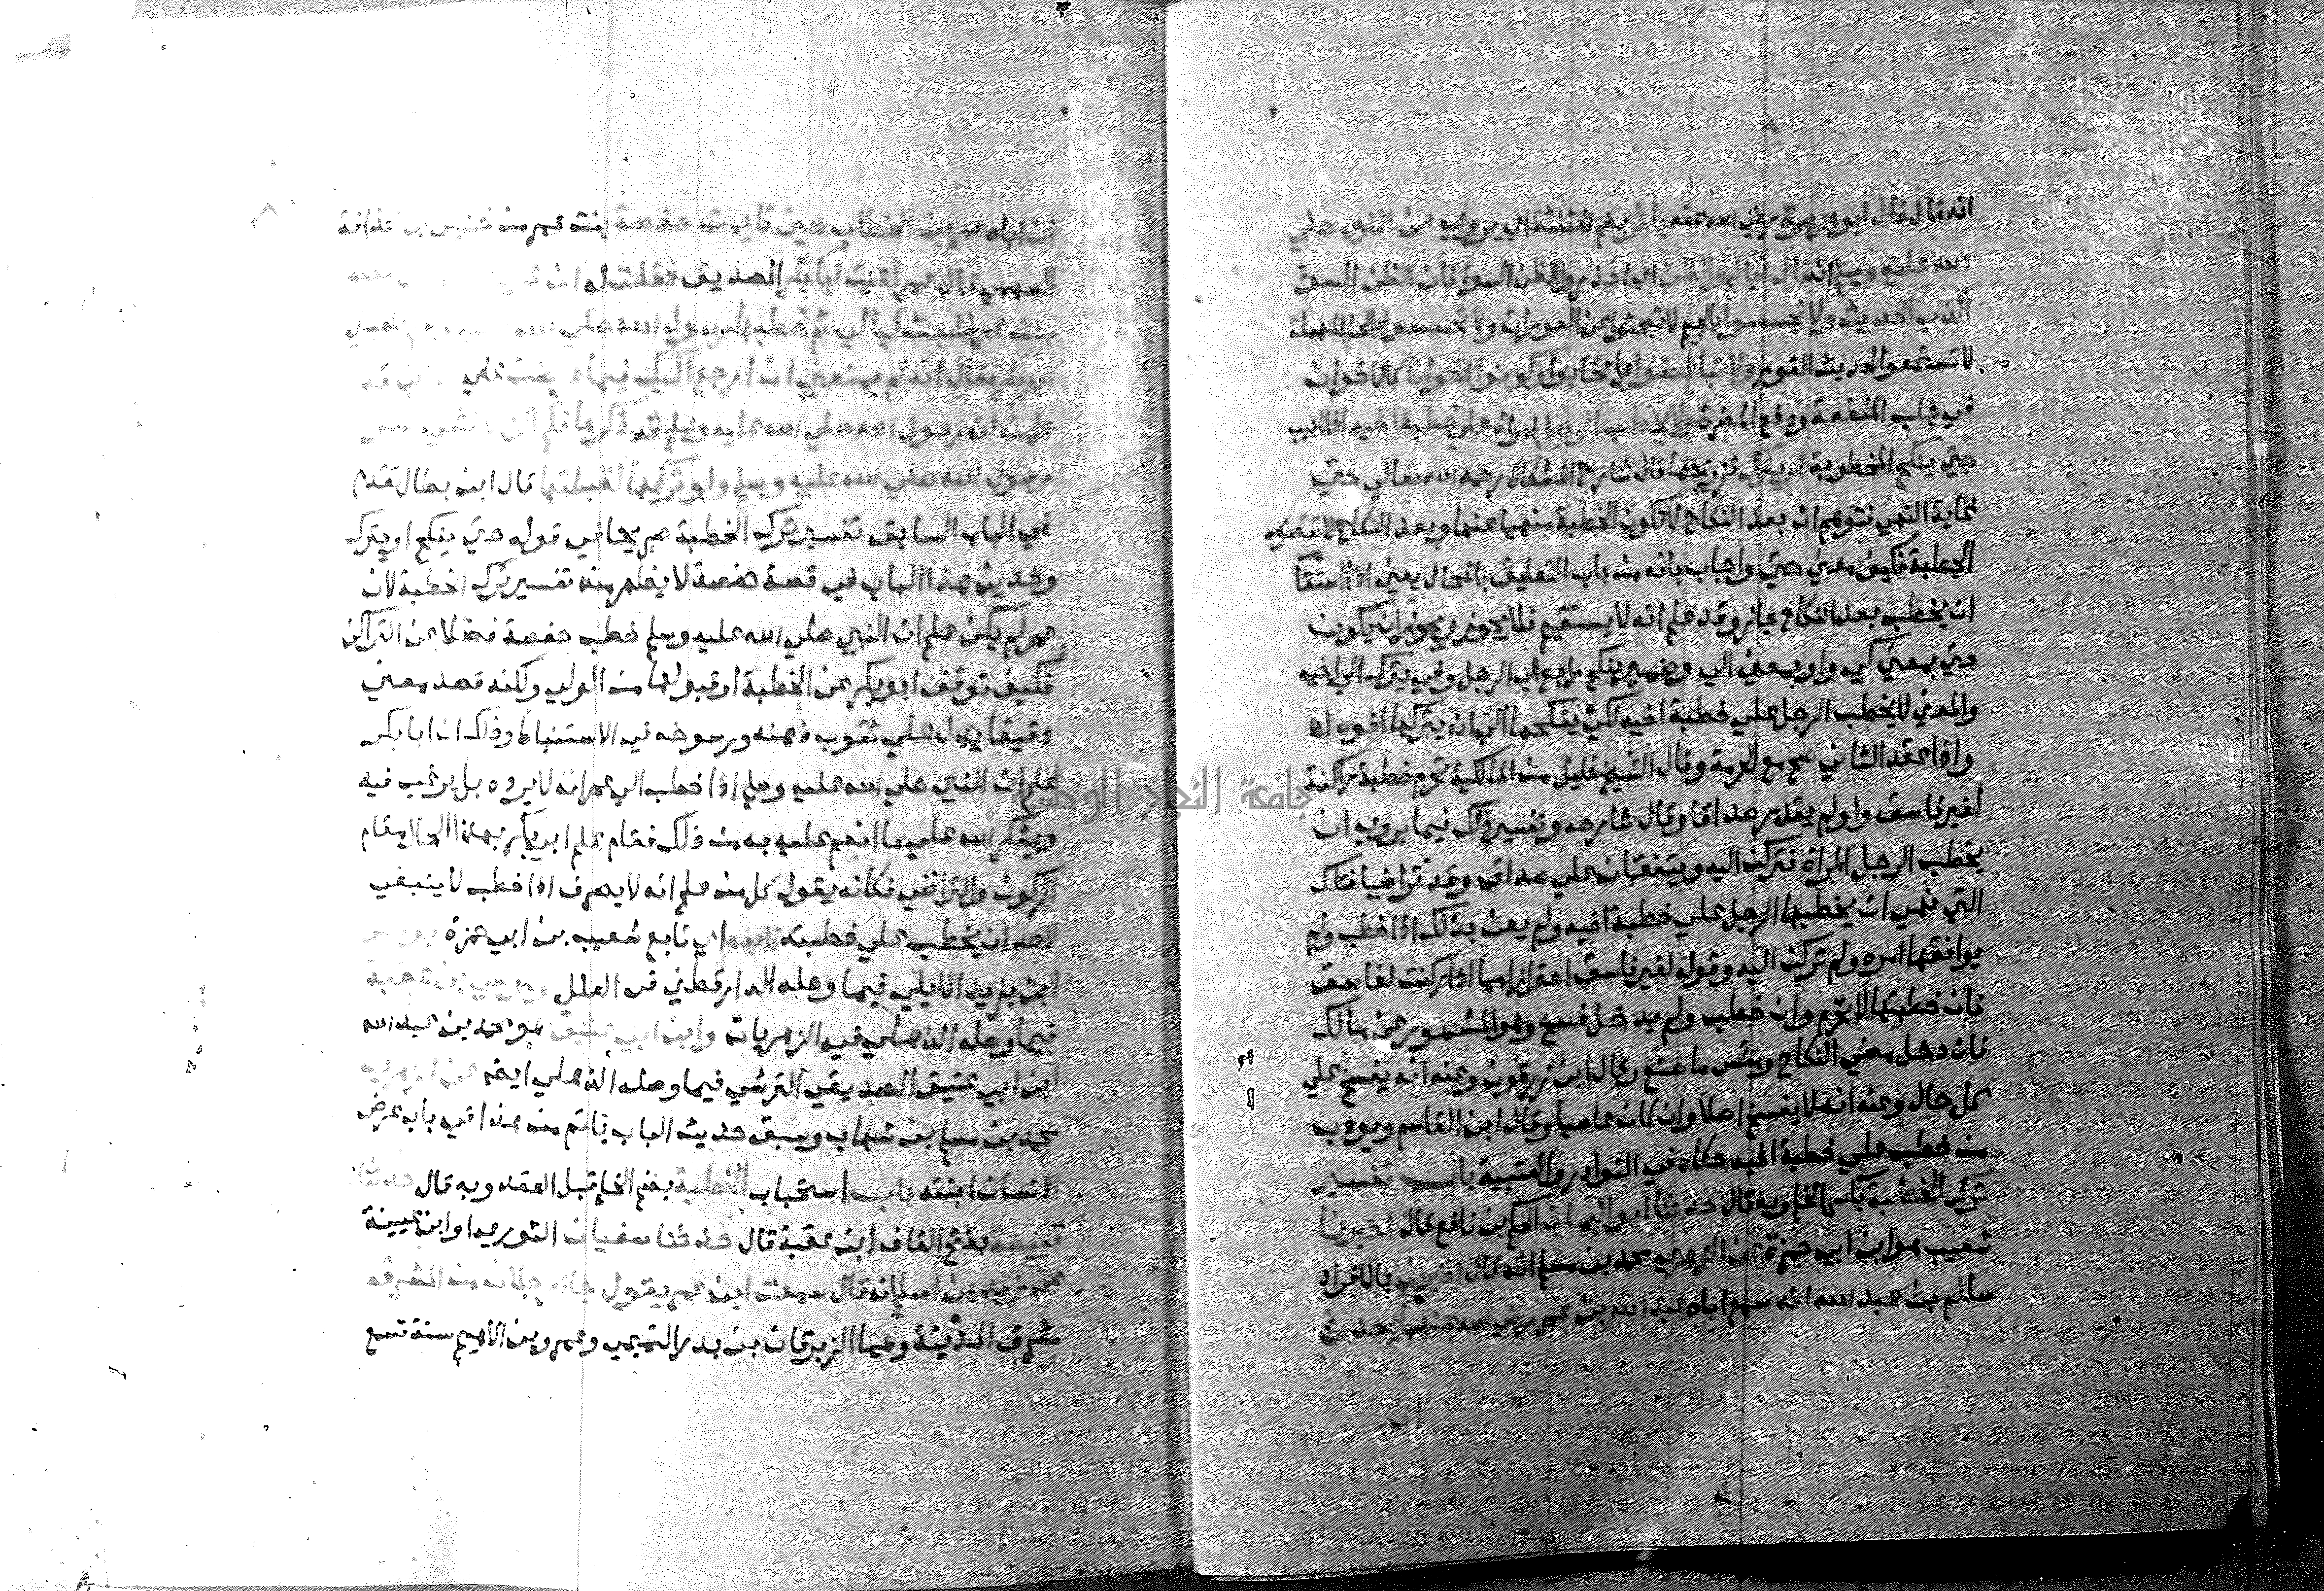 انه قال قال ابو هريرة رضي الله عنه ياثر بضم المثلثة اي يروي عن النبي صلي
الله عليه وسلم انه قال اياكم والظن اي احذروا الظن السوء فان الظن السوء
اكذب الحديث ولا تجسسوا بالجيم لا تبحثوا عن العورات ولا تحسسوا بالحا المهملة
لا تستمعوا لحديث القوم ولا تباغضوا بل تحابوا وكونوا اخوانا كالاخوان
في جلب المنفعة ودفع المضرة ولا يخطب الرجل امراة علي خطبة اخيه اذا اجيب
حتي ينكح المخطوبة او يترك تزويجها قال شارح المشكاة رحمه الله تعالي حتي
غاية النهي فتوهم ان بعد النكاح لا تكون الخطبة منهيا عنها وبعد النكاح لا تتصور
الخطبة فكيف معني حتي واجاب بانه من باب التعليق بالمحال يعني اذا استقا
ان يخطب بعد النكاح جاز وقد علم انه لا يستقيم فلا يجوز ويجوز ان يكون
حتي بمعني كي واو بمعني الي وضمير ينكح راجع الي الرجل وفي يترك الي اخيه
والمعني لا يخطب الرجل علي خطبة اخيه لكي ينكحها الي ان يتركها اخوه اه
واذا عقد الثاني صح مع الحرمة وقال الشيخ خليل من المالكية تحرم خطبة راكنة
لغير فاسق ولو لم يقدر صداقا وقال شارحه وتفسير ذلك فيما يروي ان
يخطب الرجل المراة فتركن اليه ويتفقان علي صداق وقد تراضيا فتلك
التي نهي ان يخطبها الرجل علي خطبة اخيه ولم يعن بذلك اذا خطب ولم
يوافقها امره ولم تركن اليه وقوله لغير فاسق احترازا مما اذا ركنت لفاسق
فان خطبتها لا تحرم وان خطب ولم يدخل فسخ وهو المشهور عن مالك
فان دخل مضي النكاح وبئس ما صنع وقال ابن زرعون وعنه انه يفسخ علي
كل حال وعنه انه لا يفسخ اصلا وان كان عاصيا وقال ابن القاسم ويودب
من خطب علي خطبة اخيه حكاه في النوادر والعتبية باب تفسير
ترك الخطبة بكسر الخا وبه قال حدثنا ابو اليمان الحكم بن نافع قال اخبرنا
شعيب هو ابن ابي حمزة عن الزهري محمد بن مسلم انه قال اخبرني بالافراد
سالم بن عبد الله انه سمع اباه عبد الله بن عمر رضي الله عنهما يحدث
ان
ان اباه عمر بن الخطاب حين تايمت حفصة بنت عمر من خنيس بن حذافة
السهمي قال عمر لقيت ابا بكر الصديق فقلت له ان
بنت عمر فلبثت ليالي ثم خطبها رسول الله صلي الله
ابو بكر فقال انه لم يمنعني ان ارجع اليك فيما عرضت علي
علمت ان رسول الله صلي الله عليه وسلم قد ذكرها فلم اكن لافشي سر
رسول الله صلي الله عليه وسلم ولو تركها لقبلتها قال ابن بطال تقدم
في الباب السابق تفسير ترك الخطبة صريحا في قوله حتي ينكح او يترك
وحديث هذا الباب في قصة حفصة لا يظهر منه تفسير ترك الخطبة لان
عمر لم يكن علم ان النبي صلي الله عليه وسلم خطب حفصة فضلا عن التراكن
فكيف توقف ابو بكر عن الخطبة او قبولها من الولي ولكنه قصد معني
دقيقا يدل علي ثقوب ذهنه ورسوخه في الاستنباط وذلك ان ابا بكر
علم ان النبي صلي الله عليه وسلم اذا خطب الي عمر انه لا يرده بل يرغب فيه
ويشكر الله علي ما انعم عليه به من ذلك فقام علم ابي بكر بهذا الحال مقام
الركون والتراضي فكانه يقول كل من علم انه لا يصرف اذا خطب لا ينبغي
لاحد ان يخطب علي خطبته تابعه اي تابع شعيب بن ابي حمزة
ابن يزيد الايلي فيما وصله الدارقطني في العلل وموسي بن عقبة
فيما وصله الذهلي في الزهريات وابن ابي عتيق هو محمد بن عبد الله
ابن ابي عتيق الصديقي القرشي فيما وصله الذهلي ايضا عن الزهري
محمد بن مسلم بن شهاب وسبق حديث الباب باتم من هذا في باب عرض
الانسان ابنته باب استحباب الخطبة بضم الخا قبل العقد وبه قال حدثنا
قبيصة بفتح القاف ابن عقبة قال حدثنا سفيان الثوري او ابن عيينة
عن زيد بن اسلم انه قال سمعت ابن عمر يقول جاء رجلان من المشرق
مشرق المدينة وهما الزبرقان بن بدر التميمي وعمرو بن الاهيم سنة تسع
جامعة النجاح الوطنية